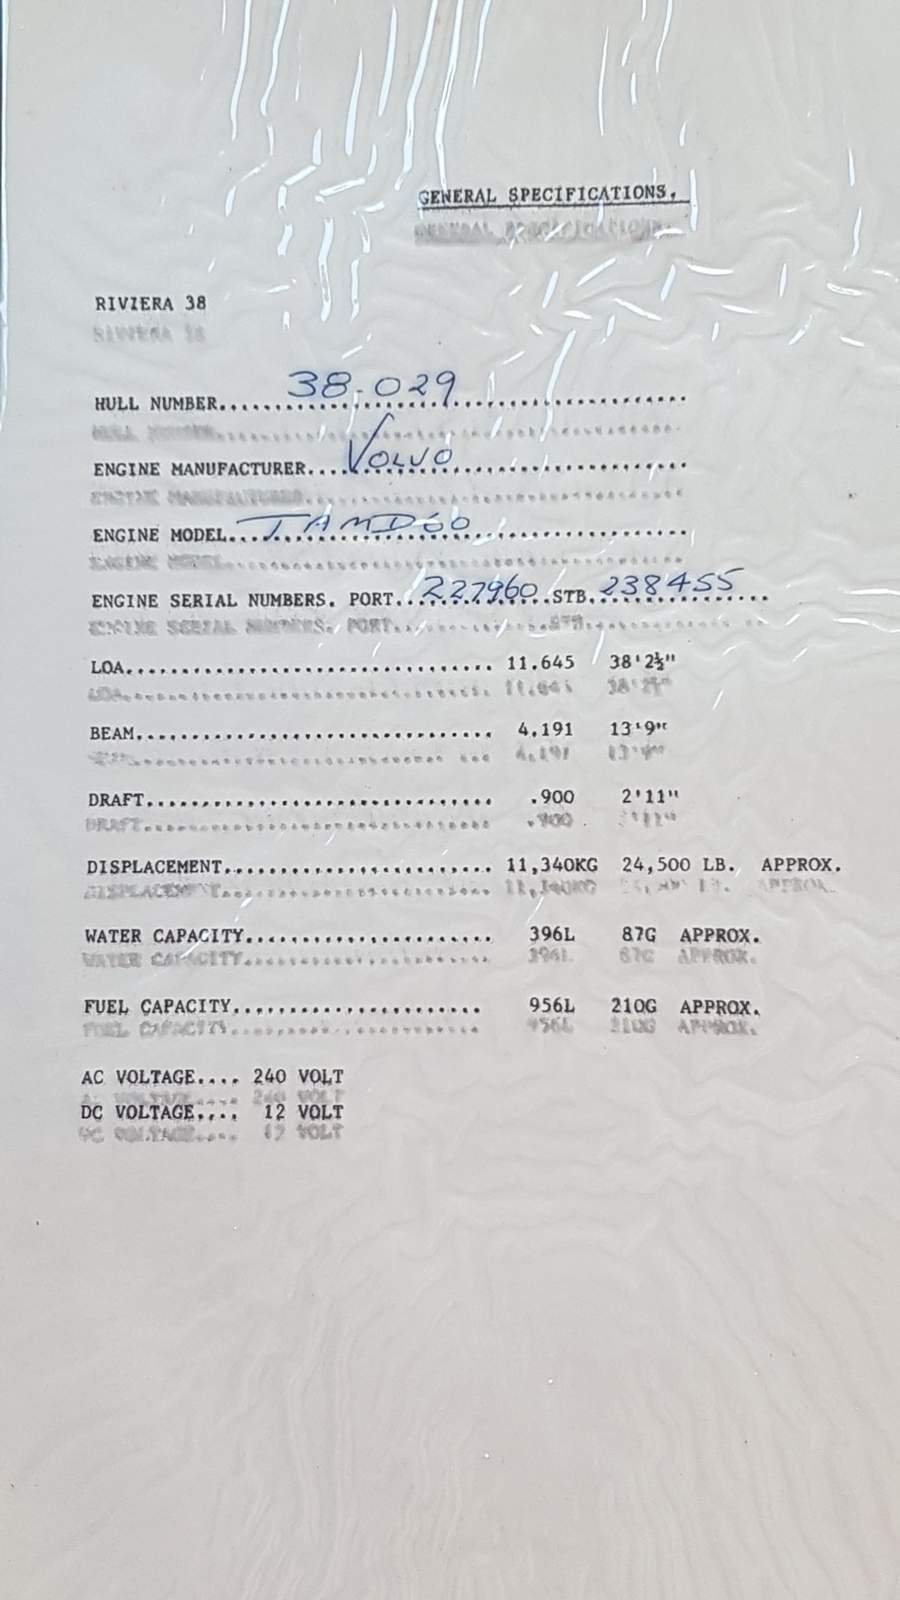 GENERAL SPECIFICATIONS.
RIVIERA 38
HULL NUMBER....38-029....
ENGINE MANUFACTURER....VOLVO....
ENGINE MODEL....TAMD60....
ENGINE SERIAL NUMBERS. PORT..227960..STB.238455...
LOA................................. 11.645 38'2½"
BEAM................................ 4,191 13'9"
DRAFT............................... .900 2'11"
DISPLACEMENT........................ 11,340KG 24,500 LB. APPROX.
WATER CAPACITY...................... 396L 87G APPROX.
FUEL CAPACITY...................... 956L 210G APPROX.
AC VOLTAGE.... 240 VOLT
DC VOLTAGE.... 12 VOLT